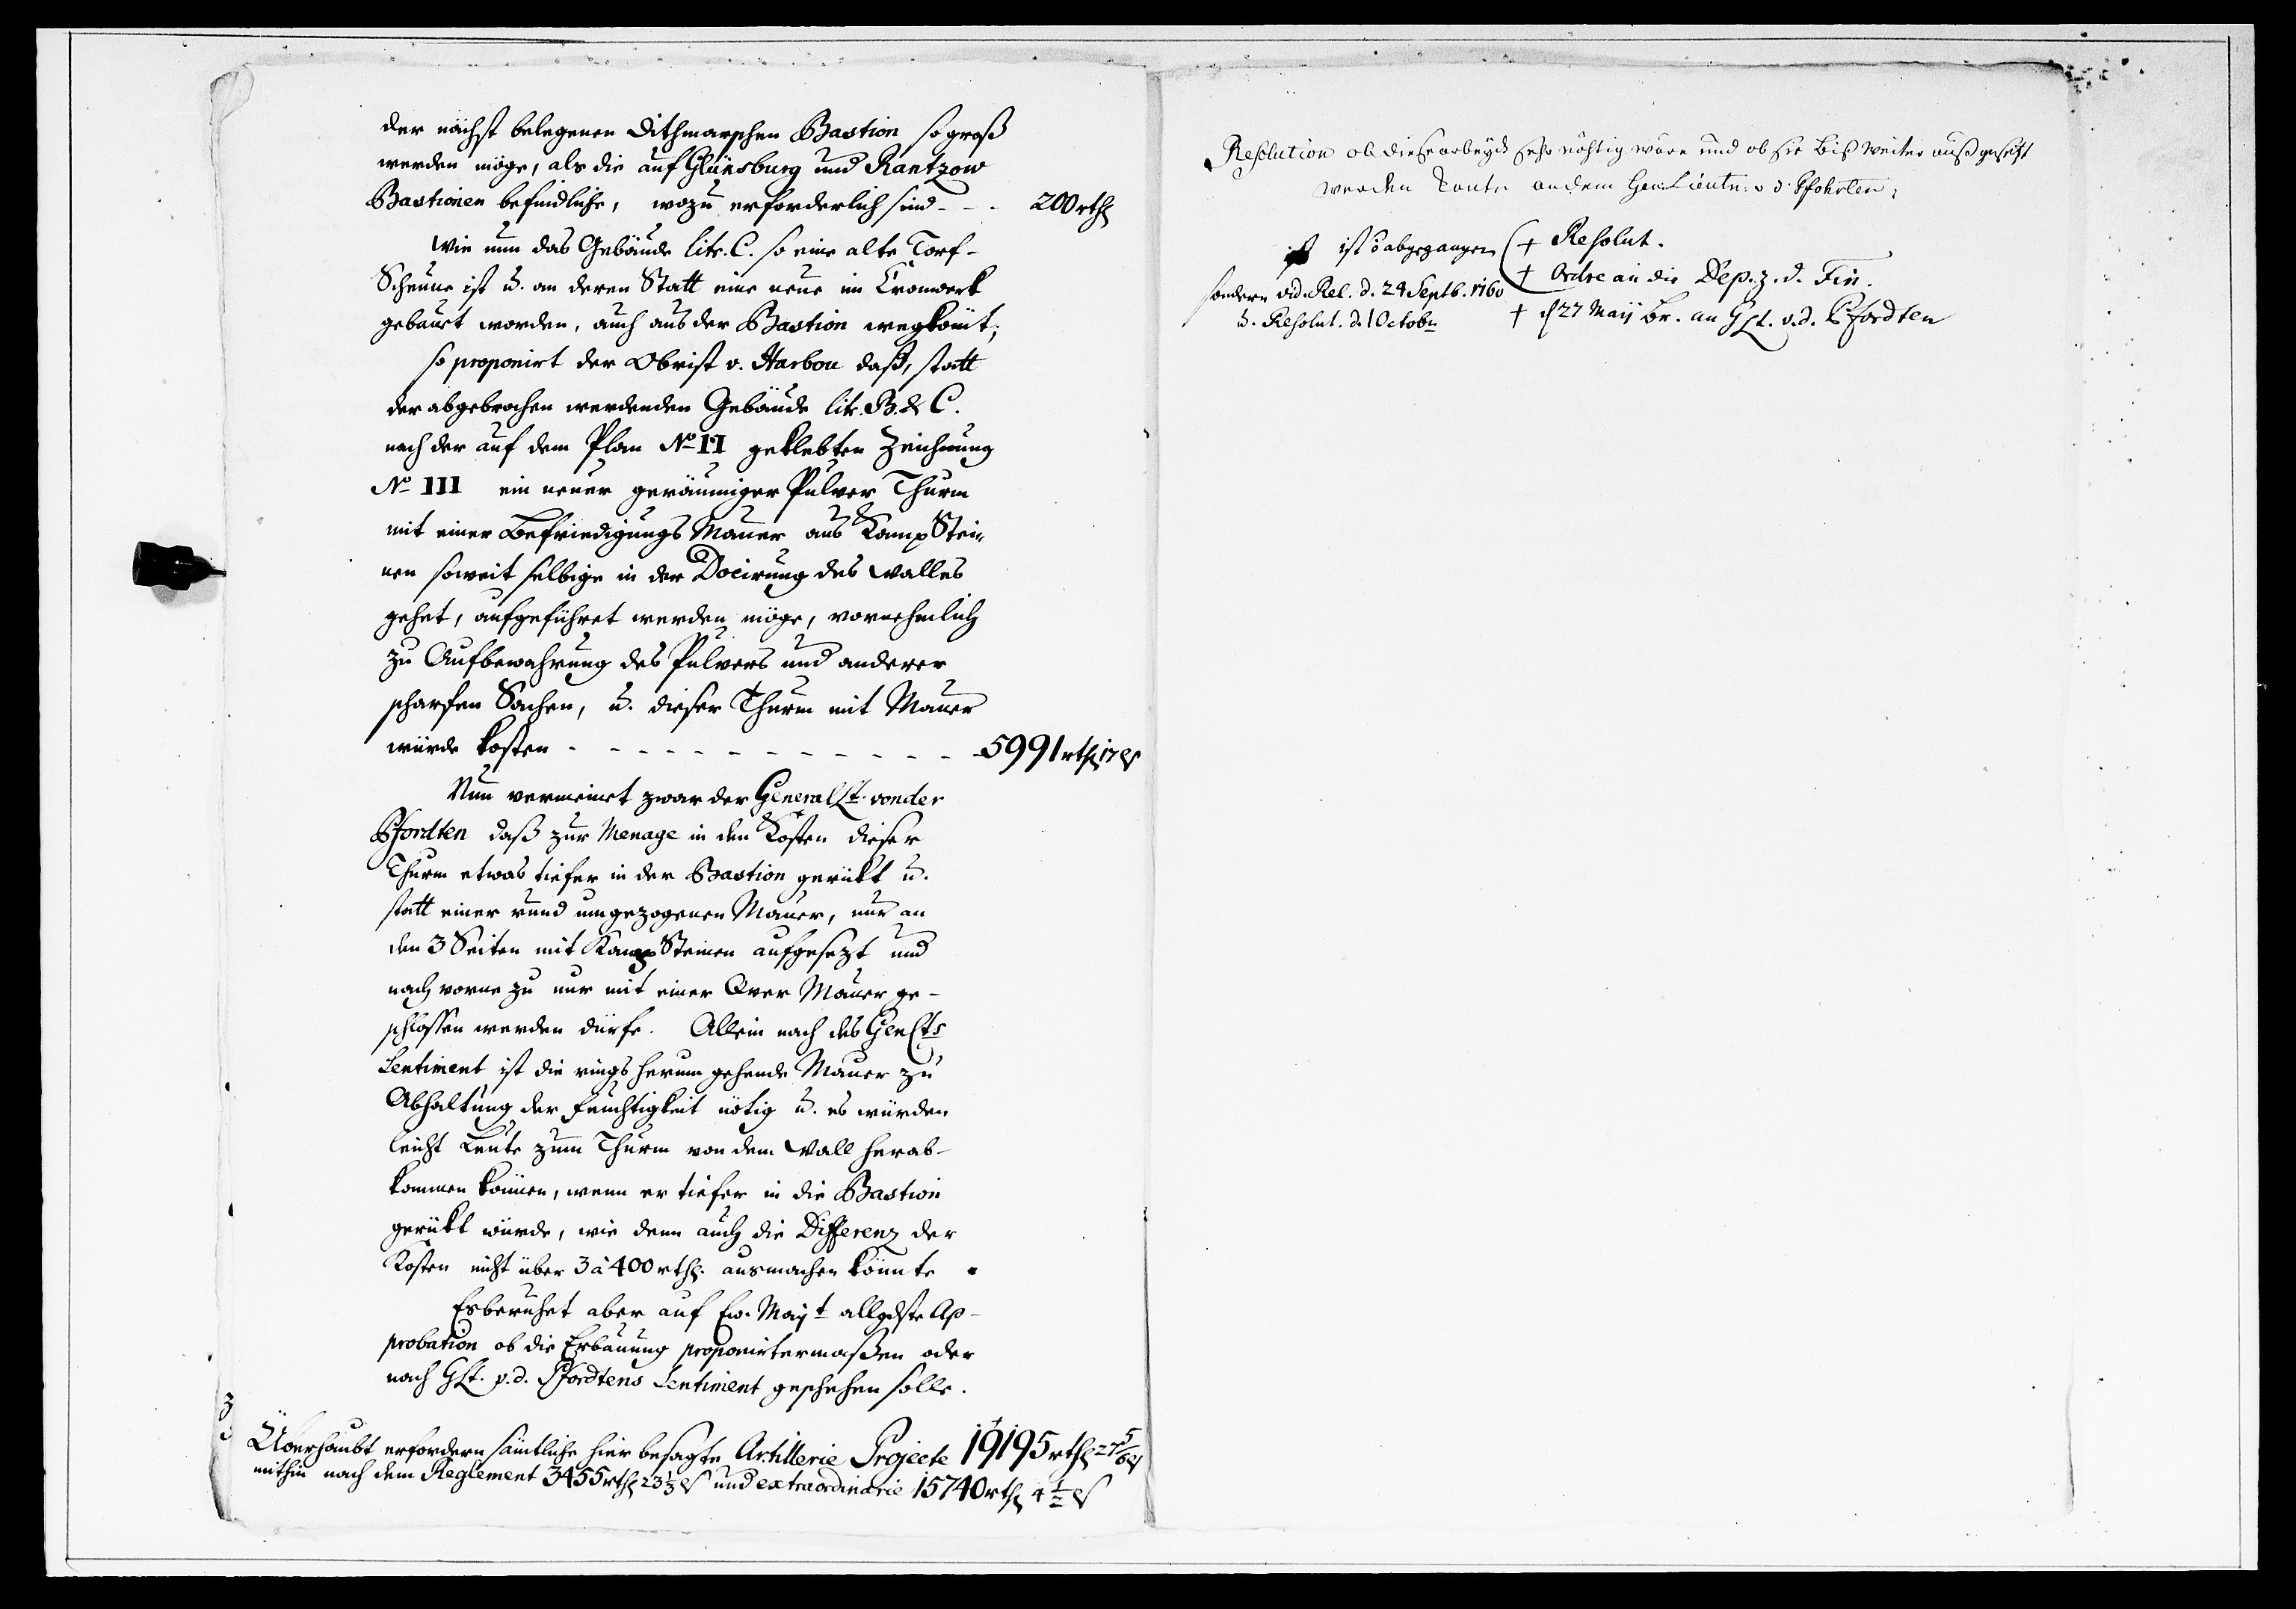 der nächst belegenen Dithmarschen Bastion so groß
werden möge, als die auf Glünsburg und Rantzow
Bastionen befindliche, wozu erforderlich sind - - - 200 rthl
Wie nun das Gebäude litr. C. so eine alte Torf-
Scheune ist u. an deren Statt eine neue im Cronwerk
gebauet worden, auch aus der Bastion wegkömt;
so proponirt der Obrist v. Harbou daß, statt
der abgebrochen werdenden Gebäude litr. B. & C.
nach der auf dem Plan No II geklebten Zeichnung
No III ein neuer geräumiger Pulver Thurm
mit einer Befriedigungs Mauer aus Kamp Stei-
nen soweit selbige in der Docirung des Walles
gehet, aufgeführet werden möge, vornehmlich
zu Aufbewahrung des Pulvers und anderer
scharfen Sachen, u. dieser Thurm mit Mauer
würde kosten - - - - - - - - - - 5991 rthl 17 ß
Nun vermeinet zwar der General Lt. von der
Pfordten daß zur Menage in den Kosten dieser
Thurm etwas tiefer in der Bastion gerükt u.
statt einer rund umgezogenen Mauer, nur an
den 3 Seiten mit Kamp Steinen aufgesezt und
nach vorne zu nur mit einer Quer Mauer ge-
schlossen werden dürfe. Allein nach des Gen Lts
Sentiment ist die rings herum gehende Mauer zu
Abhaltung der Feuchtigkeit nötig u. es würden
leicht Leute zum Thurm von dem Wall herab-
kommen können, wenn er tiefer in die Bastion
gerükt würde, wie denn auch die Differenz der
Kosten nicht über 3 à 400 rthl. ausmachen könnte.
Es beruhet aber auf Ew. Mayt allgdste Ap-
probation ob die Erbauung proponirtermaßen oder
nach GLt. v. d. Pfordtens Sentiment geschehen solle.
Überhaubt erfordern sämtliche hier besagte Artillerie Projecte 19195 rthl 27 5/6 ß
mithin nach dem Reglement 3455 rthl 23 1/3 ß und extraordinarie 15740 rthl 4 1/2 ß
Resolution ob diese arbeyds sehr nöhtig wäre und ob sie biß weiter auß gesetzt
werden konte an dem Gen. Lieutn: v d. Pfohrten;
ist o abgegangen ( + Resolut.
+ Ordre an die Dep. z. d. Fin.
sondern vid. Rel. d. 24 Septb. 1760
u. Resolut. d. 1 Octobr
+ d 27 Maij Br. an GLt. v. d. Pfordten